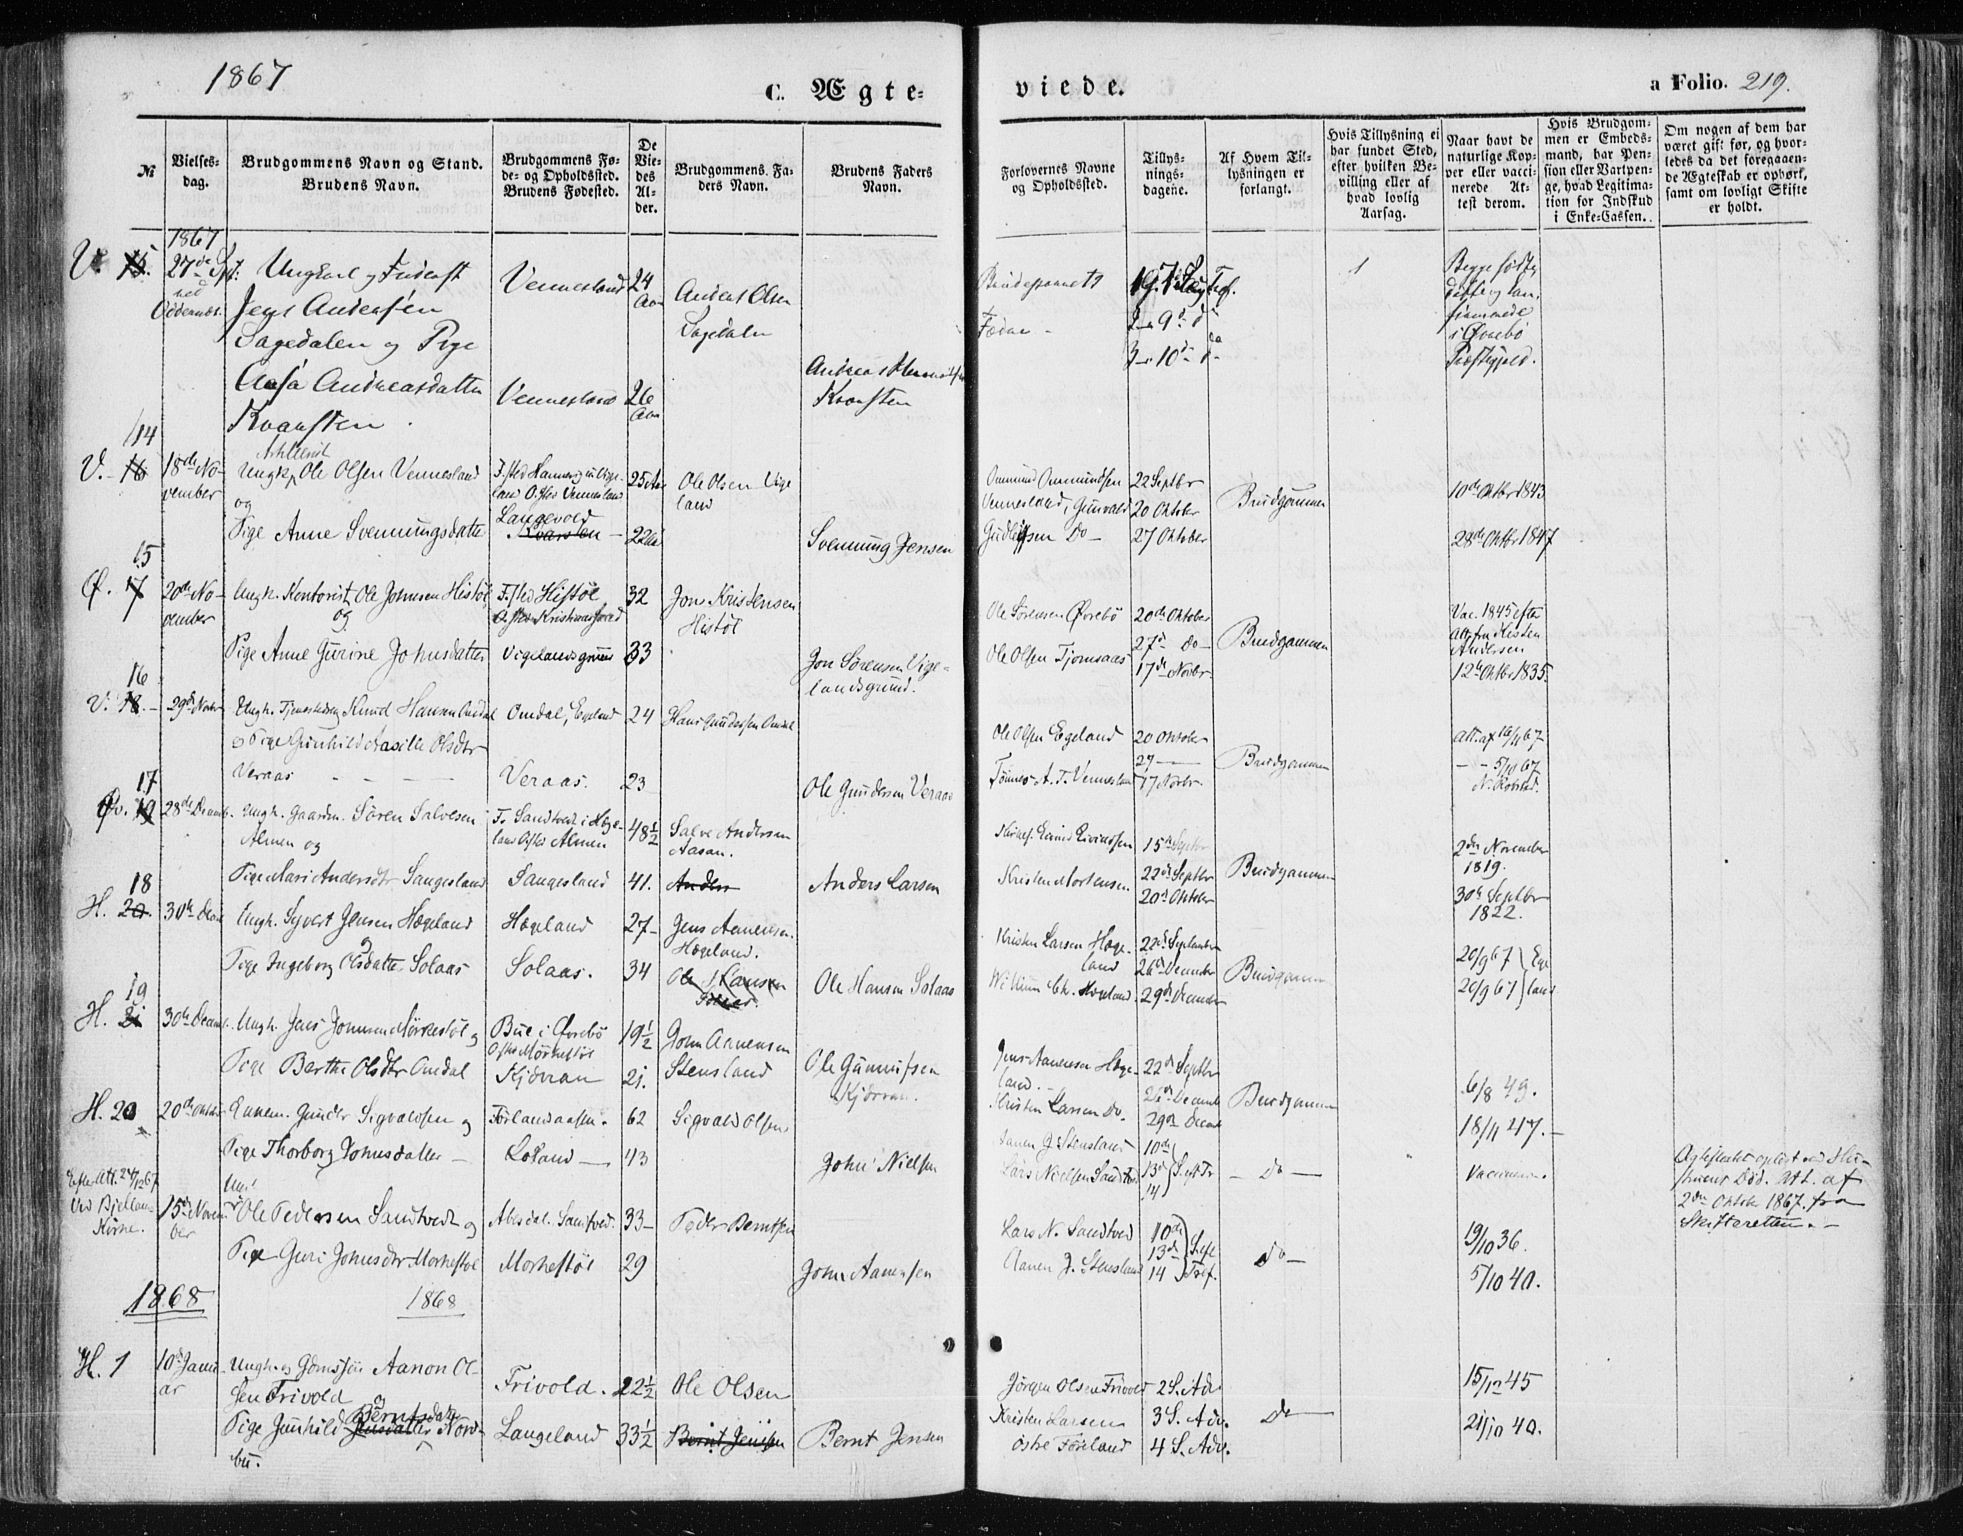 1867
C. Ægte-
viede.
a Folio. 219.
№
Vielses-
dag.
Brudgommens Navn og Stand.
Brudens Navn.
Brudgommens Fø-
de- og Opholdssted.
Brudens Fødested.
De
Vie-
des
Al-
der.
Brudgommens Fa-
ders Navn.
Brudens Faders
Navn.
Forlovernes Navne
og Opholdssted.
Tillys-
nings-
dagene.
Af Hvem Til-
lysningen er
forlangt.
Hvis Tillysning ei
har fundet Sted,
efter hvilken Be-
villing eller af
hvad lovlig
Aarsag.
Naar havt de
naturlige Kop-
per eller vacci-
nerede At-
test derom.
Hvis Brudgom-
men er Embeds-
mand, har Pen-
sion eller Vartpen-
ge, hvad Legitima-
tion for Indskud
i Enke-Cassen.
Om nogen af dem har
været gift før, og hvor-
ledes da det foregaaen-
de Ægteskab er ophørt,
samt om lovligt Skifte
er holdt.
1867
V. 27de
Ungkarl og
Jens Andersen
Sagedalen og Pige
Aasa Andreasdatter
Kvarsten
Vennesland 24 Aar
Vennesland 26 Aar
Anders Olsen
Sagedalen
Kvarsten
1
Begge
i Øvrebø
Præstegjeld.
14
V. 16 18de No-
vember
Ungk. Ole Olsen Vennesland
og
Pige Anne Svenningsdatter
Langevold
Kvarsten
25 Aar
22
Ole Olsen Vige
land
Svenning Jensen
Ommund Ommundsen
Vennesland, Gunvald
Do
22 Septbr
20 Oktober
27 Oktober
Brudgommen
10de Oktbr 1843
28de Oktbr 1847
15
Ø. 17 20de No-
vember
Ungk. Kontorist Ole Johnsen Histøl
og
Pige Anne Gurine Johnsdatter
F. sted Histøl
O. sted Kristiansand
Vigelandsgrund
32
33
Jon Kristensen
Histøl
Jon Sørensen Vige-
landsgrund.
Ole Sørensen Øvrebø
Ole Olsen Tjomsaas
20de Oktober
27d Do
17de Novbr
Brudgommen
Vac. 1845 efter
Att. fra Kisten
Andersen
12te Oktbr 1835.
16
V. 18. 29de Novbr
Ungk. Knud Hansen Omdal
og Pige Gunhild Aasille Olsdtr
Veraas
Omdal, Egeland
Veraas.
24
23
Hans Gundersen Omdal
Ole Gundersen Veraas
Ole Olsen Egeland
Tønnes A. T. Vennesland
20 Oktober
27
17 Novbr.
Brudgommen
Att. af 16/11 67
5/11 67
17
Øv. 19 28de
Ungk. Gaardm. Sören Salvesen
Almen og
Pige Mari Andersdtr Sangesland
F. Sandvedt i Hæge-
land O.sted Almen
Sangesland
48½
41.
Salve Andersen
Aasan.
Anders
Anders Larsen
Kristen Mortensen
15de Septbr
22de Septbr
20de Oktober
Brudgommen
2den November
1819.
30te Septbr
1822.
18
H. 20. 30te
Ungk. Syvert Jensen Hægeland
Pige Ingeborg Olsdatter Solaas
Hægeland
Solaas.
27
34
Jens Aanensen
Hægeland.
Ole Hansen
Solaas
Ole Hansen Solaas
Kristen Larsen Hæge-
land
William Chr. Hægeland.
22de September
26de December
29de December
Brudgommen
20/9 67 } Ege
20/9 67 } land
19
H. 21 30te
Ungk. Jens Johnsen Mörkestøl og
Pige Berthe Olsdtr Omdal
Bue i Øvrebø
O.sted Mörkestøl
Kjövran
19½
21.
John Aanensen
Stensland
Ole Gunnufsen
Kjövran.
Jens Aanensen Hæge-
land.
Kristen Larsen Do.
22de Septbr
26de Decemb
29de Decemb
Brudgommen
6/8 49.
18/11 47.
H. 20 20de Oktbr
Enkem. Gunder Sigvaldsen og
Pige Thorborg Johnsdatter
Förlandsaasen.
Loland
62
43
Sigvald Olsen
John Nielsen
Aanen J. Stensland
Lars Nielsen Sandved
10de
13de } Septbr
14
Do
Vaccinerede.
Ægteskabet opløst ved Hu-
struens Död. Att. af
2den Oktober 1867 fra
Skifteretten.
Efter Att. 24/12 67
Ved Bjelland
Kirke.
15de Novem
ber
Ole Pedersen Sandvedt og
Pige Guri Johnsdtr Morkestøl
Abesdal. Sandved.
Morkestøl
33
29
Peder Berntsen
John Aanensen
Lars N. Sandved
Aanen J. Stensland
10de
13de
14
Do
19/10 36.
5/10 40.
1868
1868
H. 1 10de Janu-
ar
Ungk. og Aanon Ol-
sen Frivold
og
Pige Gunhild Jensdatter Berntsdatter Nord-
bü.
Frivold.
Langeland
22½
33½
Ole Olsen
Bernt Jensen
Bernt Jensen
Jörgen Olsen Frivold
Kristen Larsen
östre Föreland
2 S. Adv
3 S. Adv.
4 S. Adv.
Do
15/12 45
21/10 40.